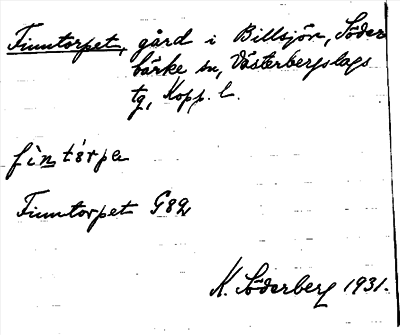 Finntorpet, gård i Billsjön, Söder
bärke sn, Västerbergslags
tg, Kopp. l.
fìntòrpa
Finntorpet G82
K. Söderberg 1931.